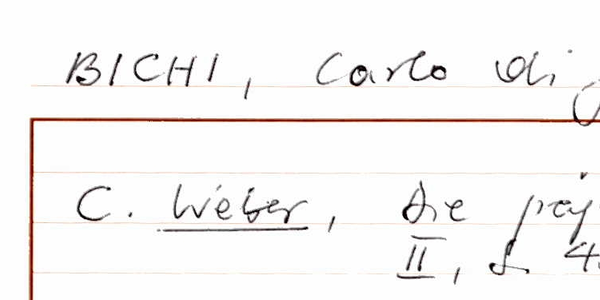 BICHI, Carlo di
C. Weber, Die
II, S. 4